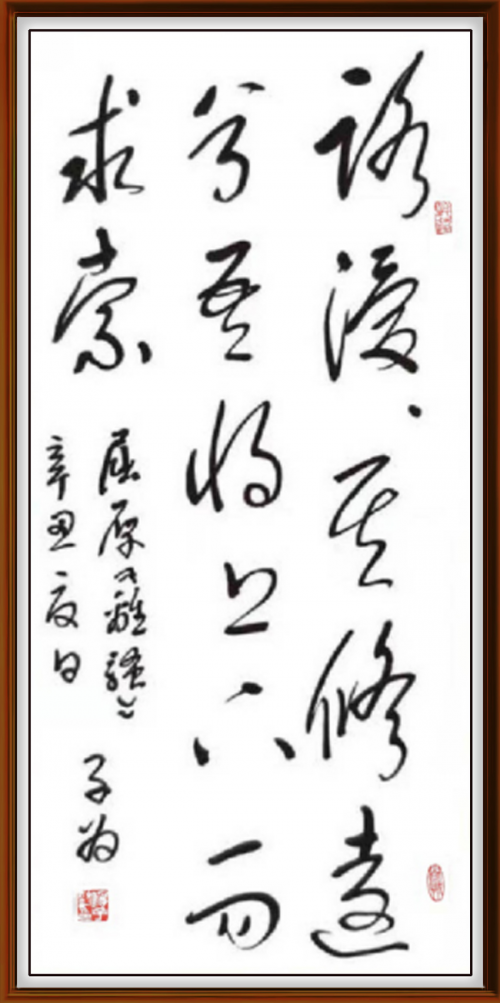 路漫、其修遠
兮吾将上下而
求索
屈原《離騷》
辛丑夏日
子为